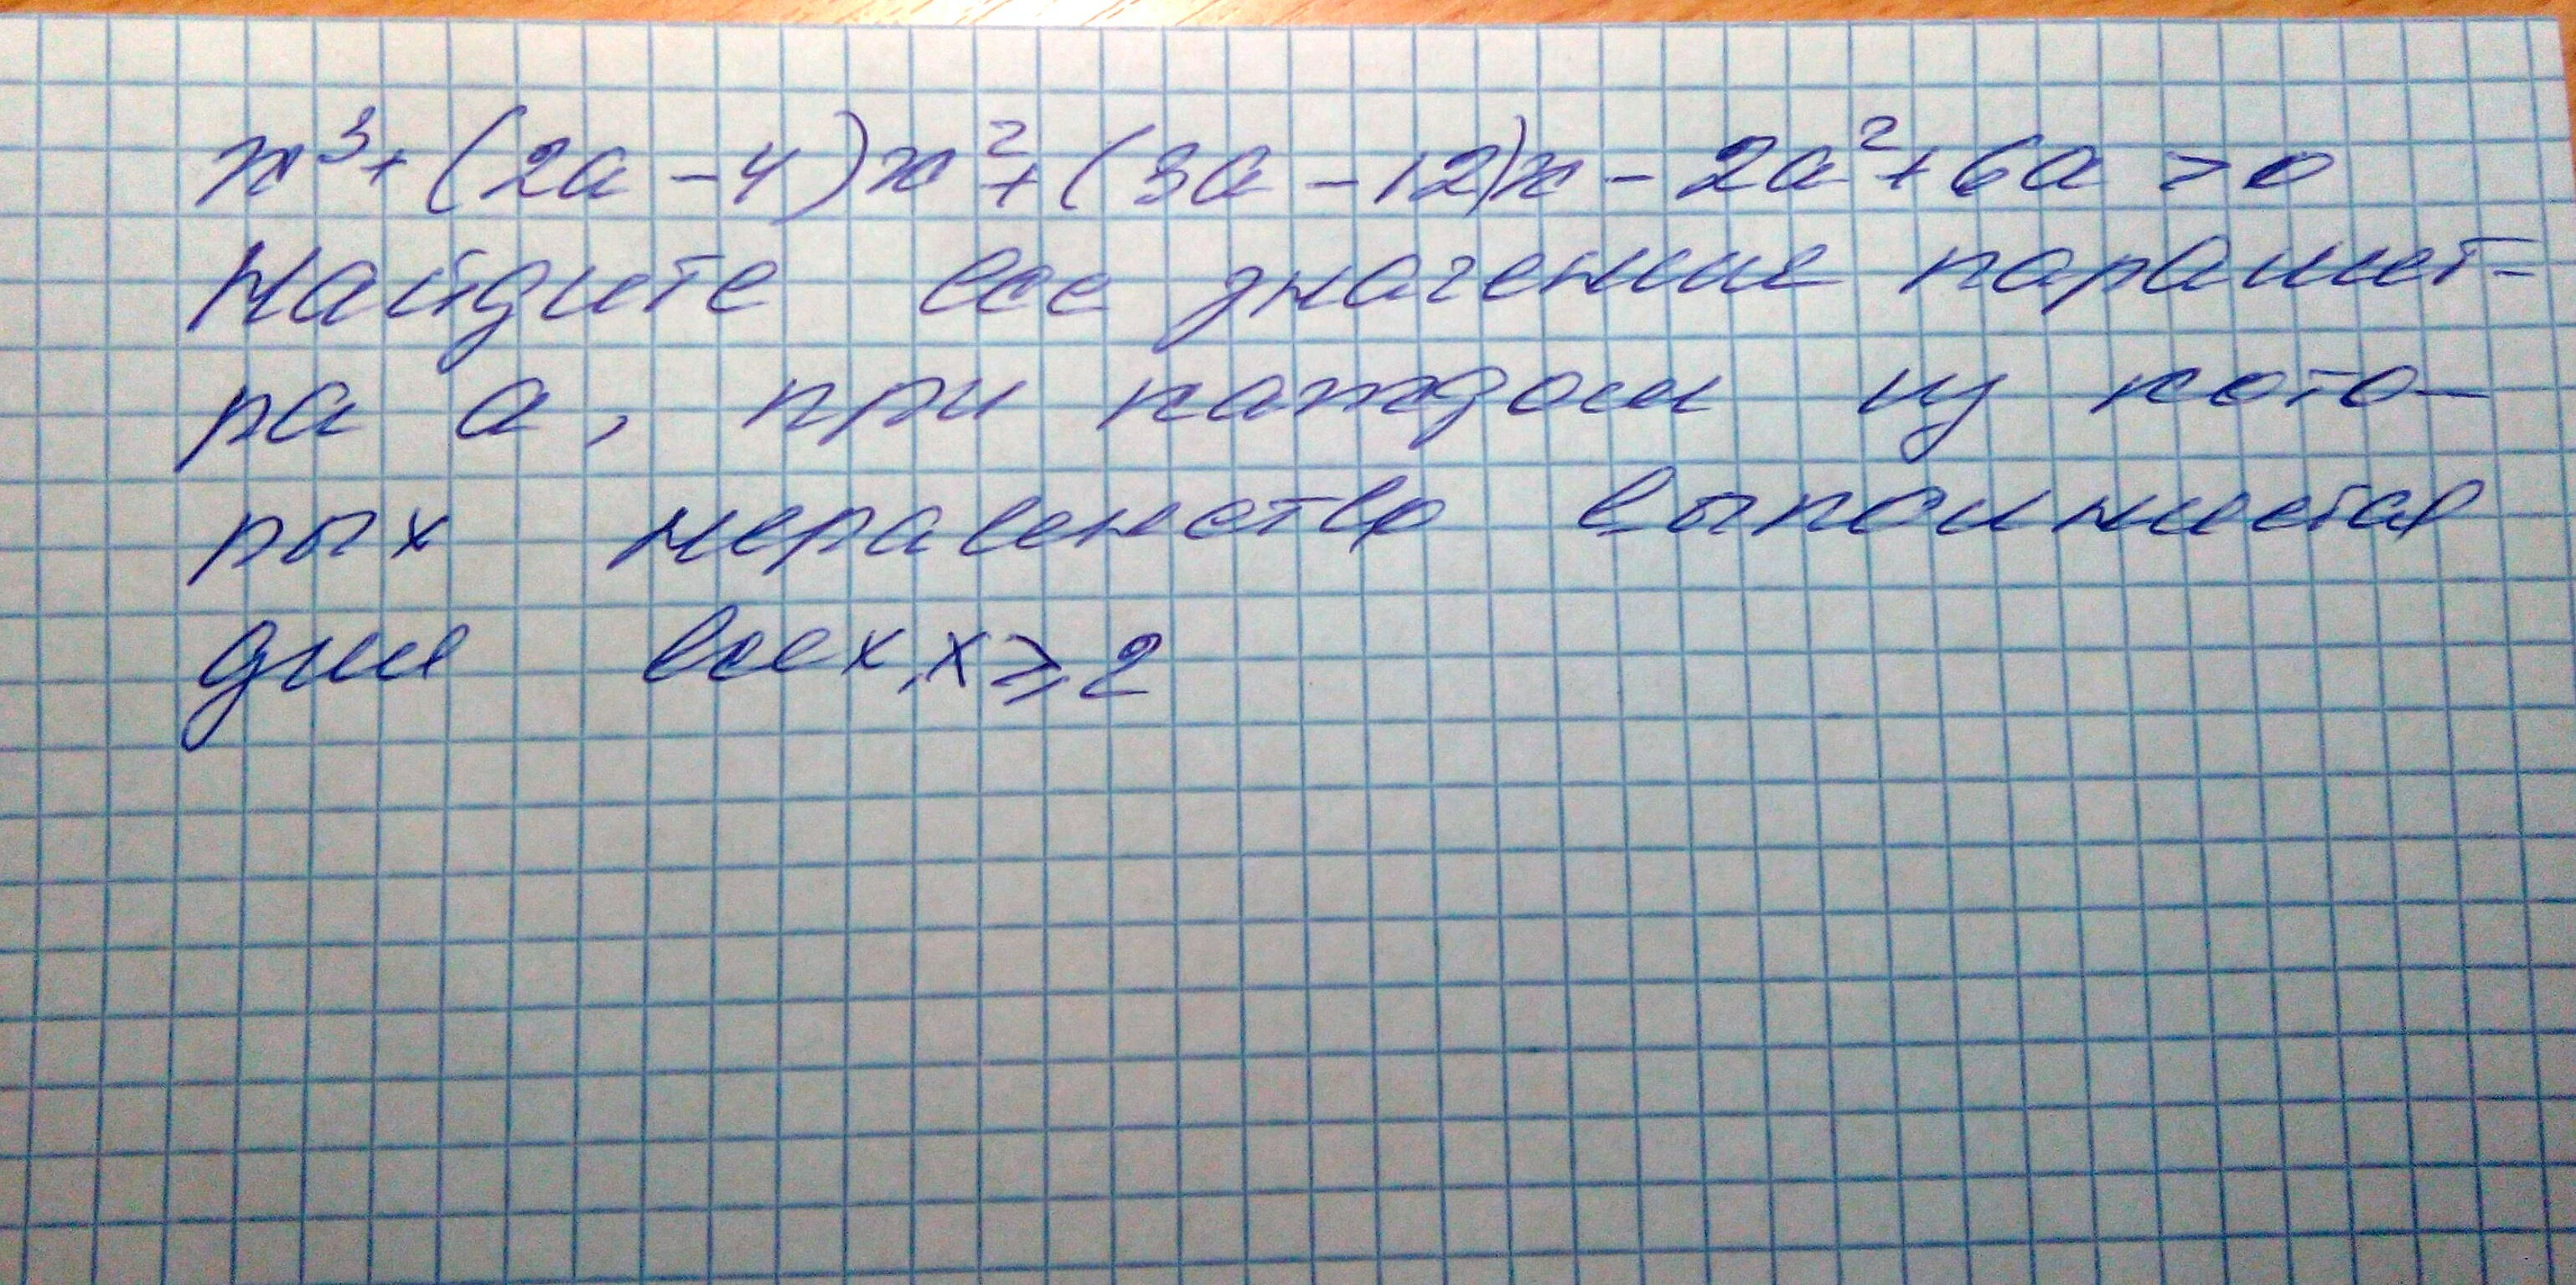 x³+(2a-4)x²+(3a-12)x-2a²+6a>0
Найдите все значение парамет-
ра a, при каждом из кото-
рых неравенство выполняется
для всех, x⩾2